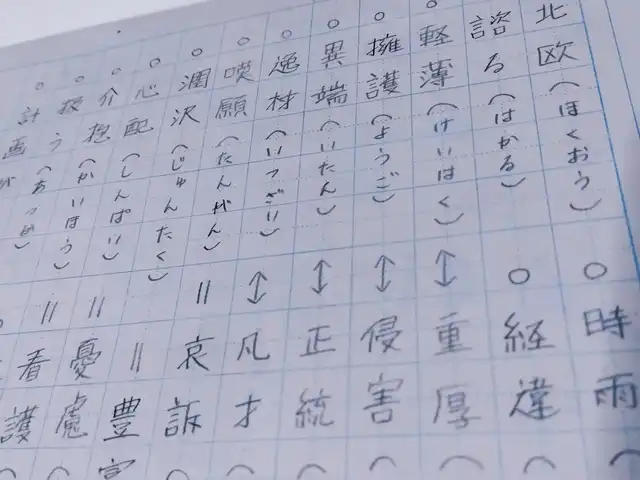 北欧(ほくおう)○時雨(
諮る(はかる)○経違(
○軽薄(けいはく)↕重厚(
○擁護(ようご)↕侵害(
○異端(いたん)↕正統(
○逸材(いつざい)↕凡才(
○嘆願(たんがん)=哀訴(
○潤沢(じゅんたく)=豊富
○心配(しんぱい)=憂慮(
○介抱(かいほう)=看護(
○扱う(あつか)
計画